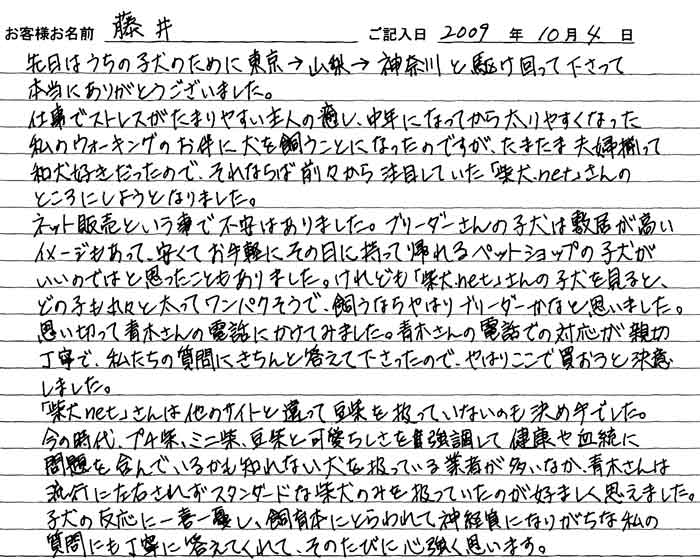 お客様お名前 藤井 ご記入日 2009 年 10 月 4 日
先日はうちの子犬のために東京→山梨→神奈川と駆け回って下さって
本当にありがとうございました。
仕事でストレスがたまりやすい主人の癒し、中年になってから太りやすくなった
私のウォーキングのお伴に犬を飼うことになったのですが、たまたま夫婦揃って
和犬好きだったので、それならば前々から注目していた「柴犬.net」さんの
ところにしようとなりました。
ネット販売という事で不安はありました。ブリーダーさんの子犬は敷居が高い
イメージもあって、安くてお手軽にその日に持って帰れるペットショップの子犬が
いいのではと思ったこともありました。けれども「柴犬.net」さんの子犬を見ると、
どの子も丸々と太ってワンパクそうで、飼うならやはりブリーダーかなと思いました。
思い切って青木さんの電話にかけてみました。青木さんの電話での対応が親切
丁寧で、私たちの質問にきちんと答えて下さったので、やはりここで買おうと決意
しました。
「柴犬.net」さんは他のサイトと違って豆柴を扱っていないのも決め手でした。
今の時代、プチ柴、ミニ柴、豆柴と可愛らしさを強調して健康や血統に
問題を含んでいるかも知れない犬を扱っている業者が多いなか、青木さんは
流行に左右されずスタンダードな柴犬のみを扱っていたのが好ましく思えました。
子犬の反応に一喜一憂し、飼育本にとらわれて神経質になりがちな私の
質問にも丁寧に答えてくれて、そのたびに心強く思います。